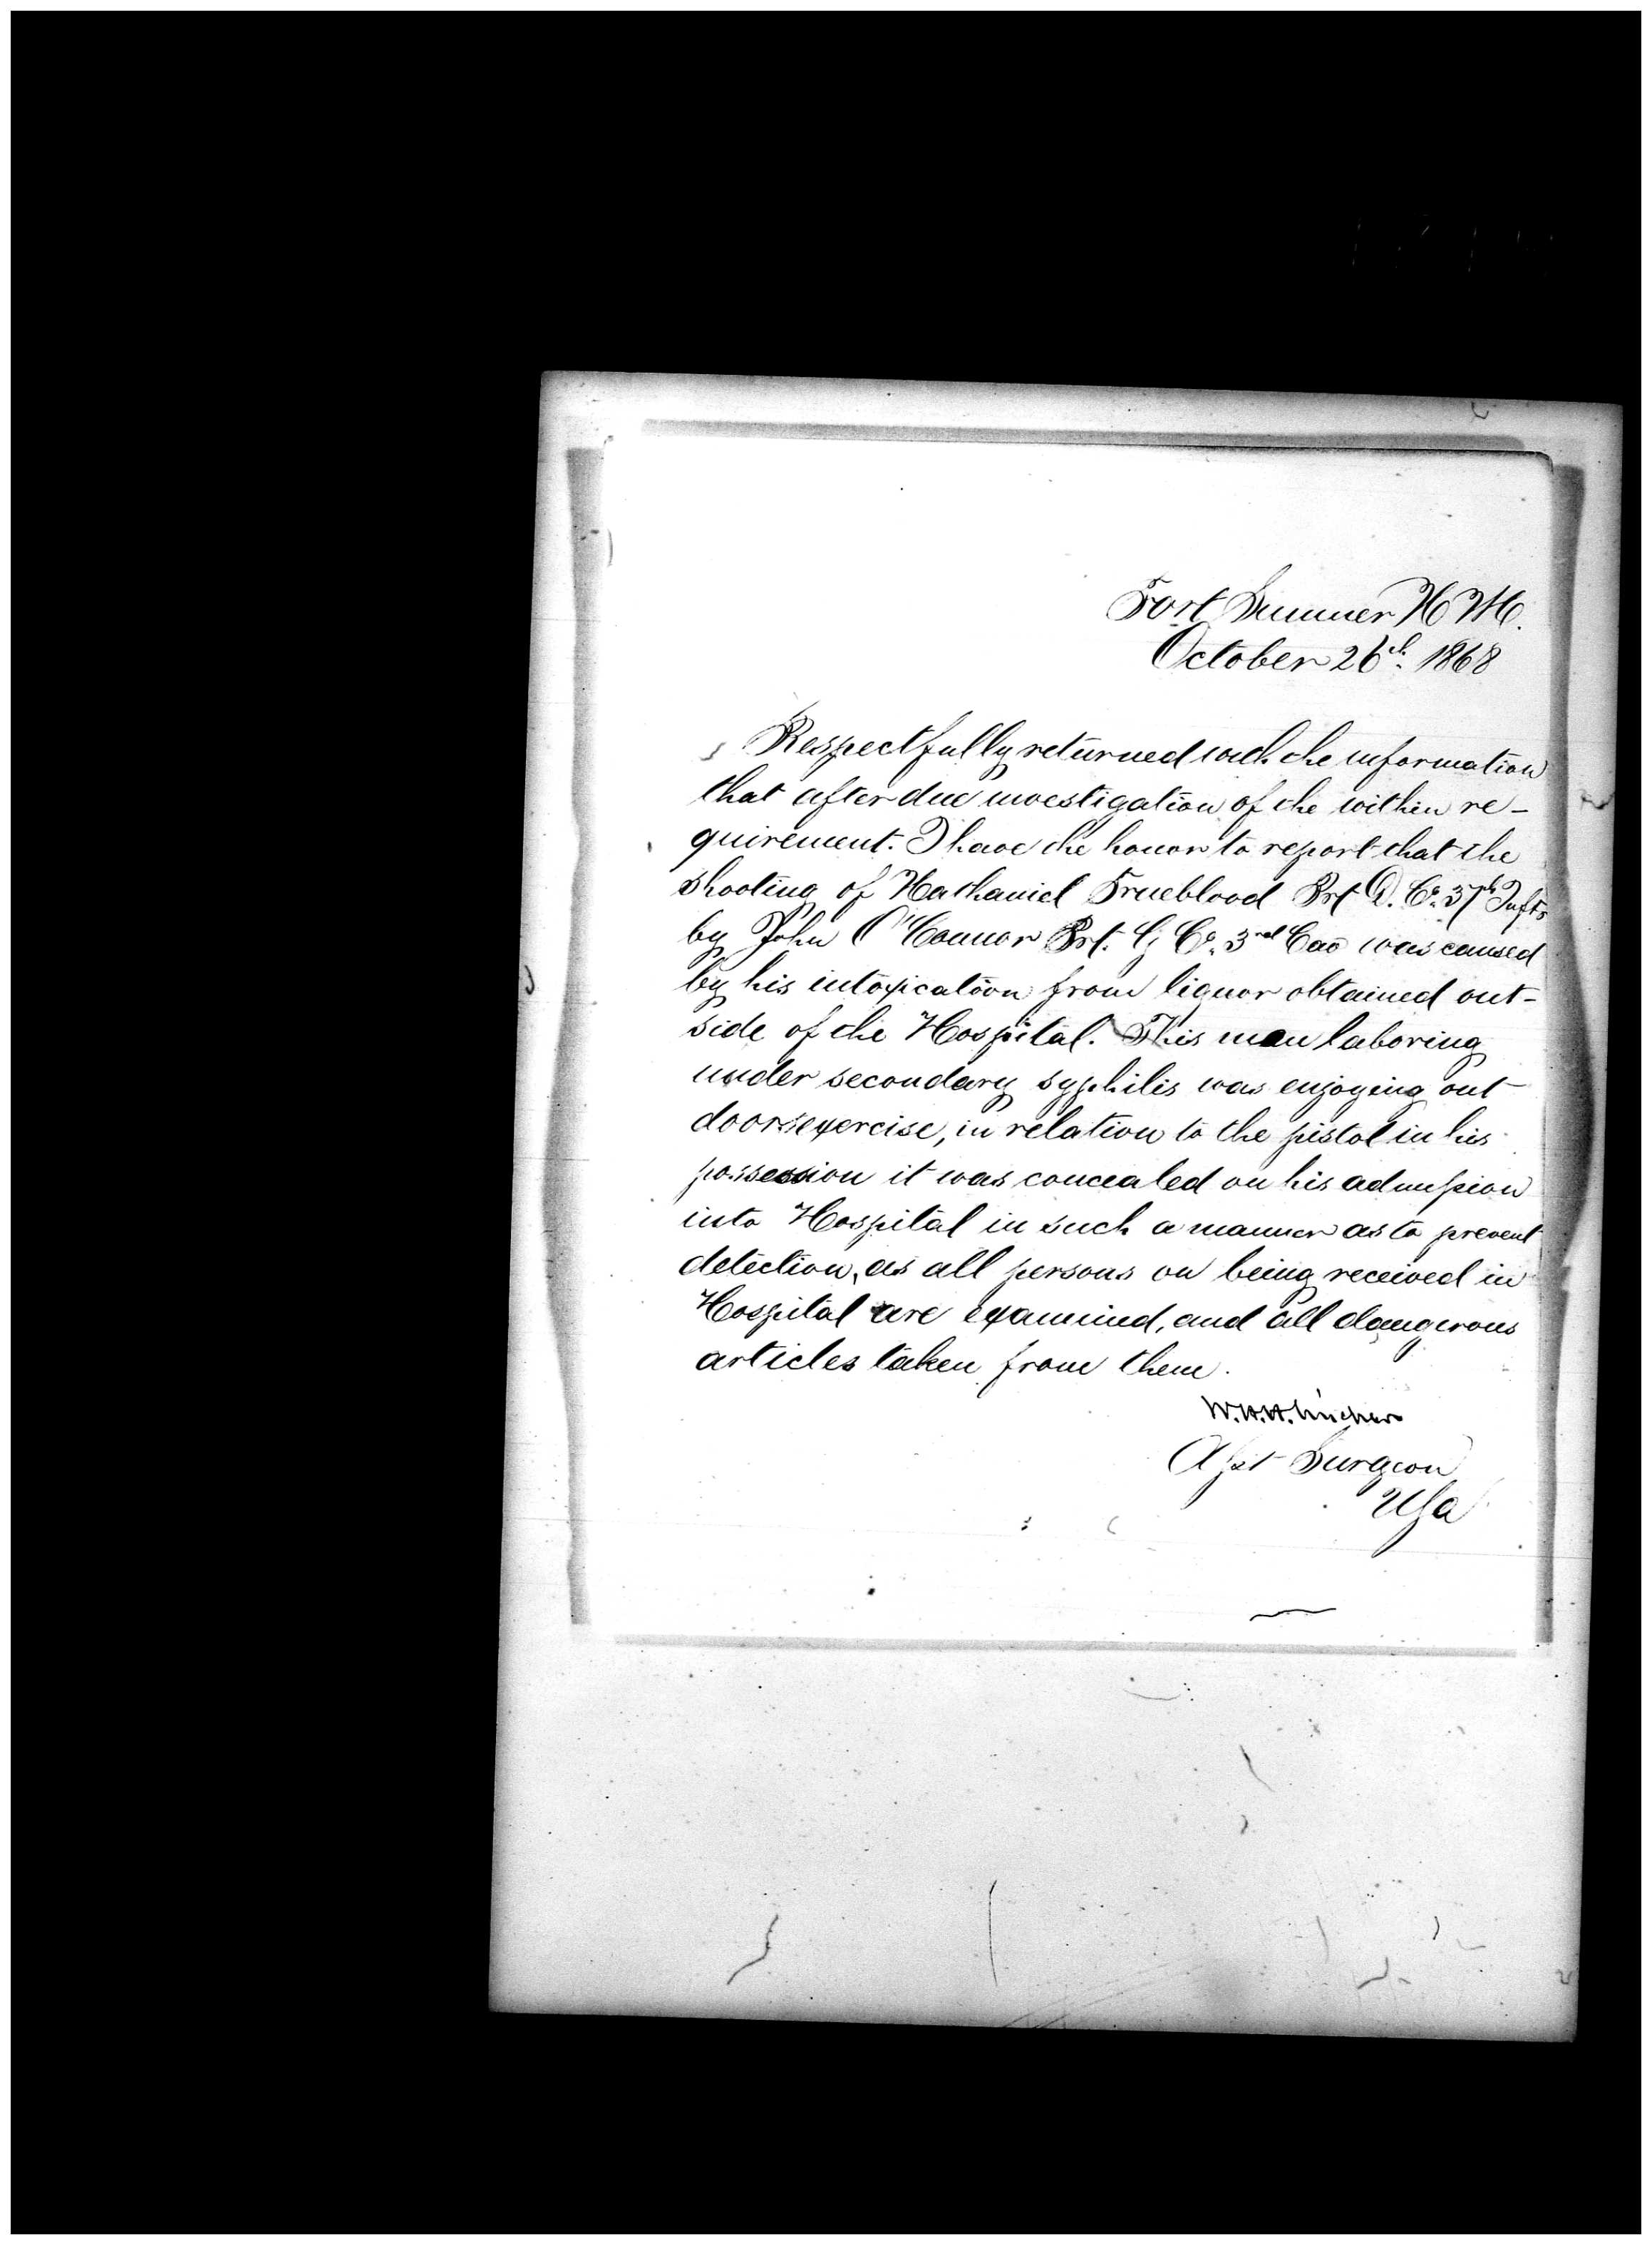 Fort Sumner N M.
October 26th 1868
Respectfully returned with the information
that after due investigation of the within re-
quirement. I have the honor to report that the
shooting of Nathaniel Trueblood Prt D. Co. 37th Inft
by John O'Connor Prt. G Co. 3rd Cav was caused
by his intoxication from liquor obtained out-
side of the Hospital. This man laboring
under secondary syphilis was enjoying out
doors exercise, in relation to the pistol in his
possession it was concealed on his admission
into Hospital in such a manner as to prevent
detection, as all persons on being received in
Hospital are examined, and all dangerous
articles taken from them.
W.H.H.
Asst Surgeon
USA